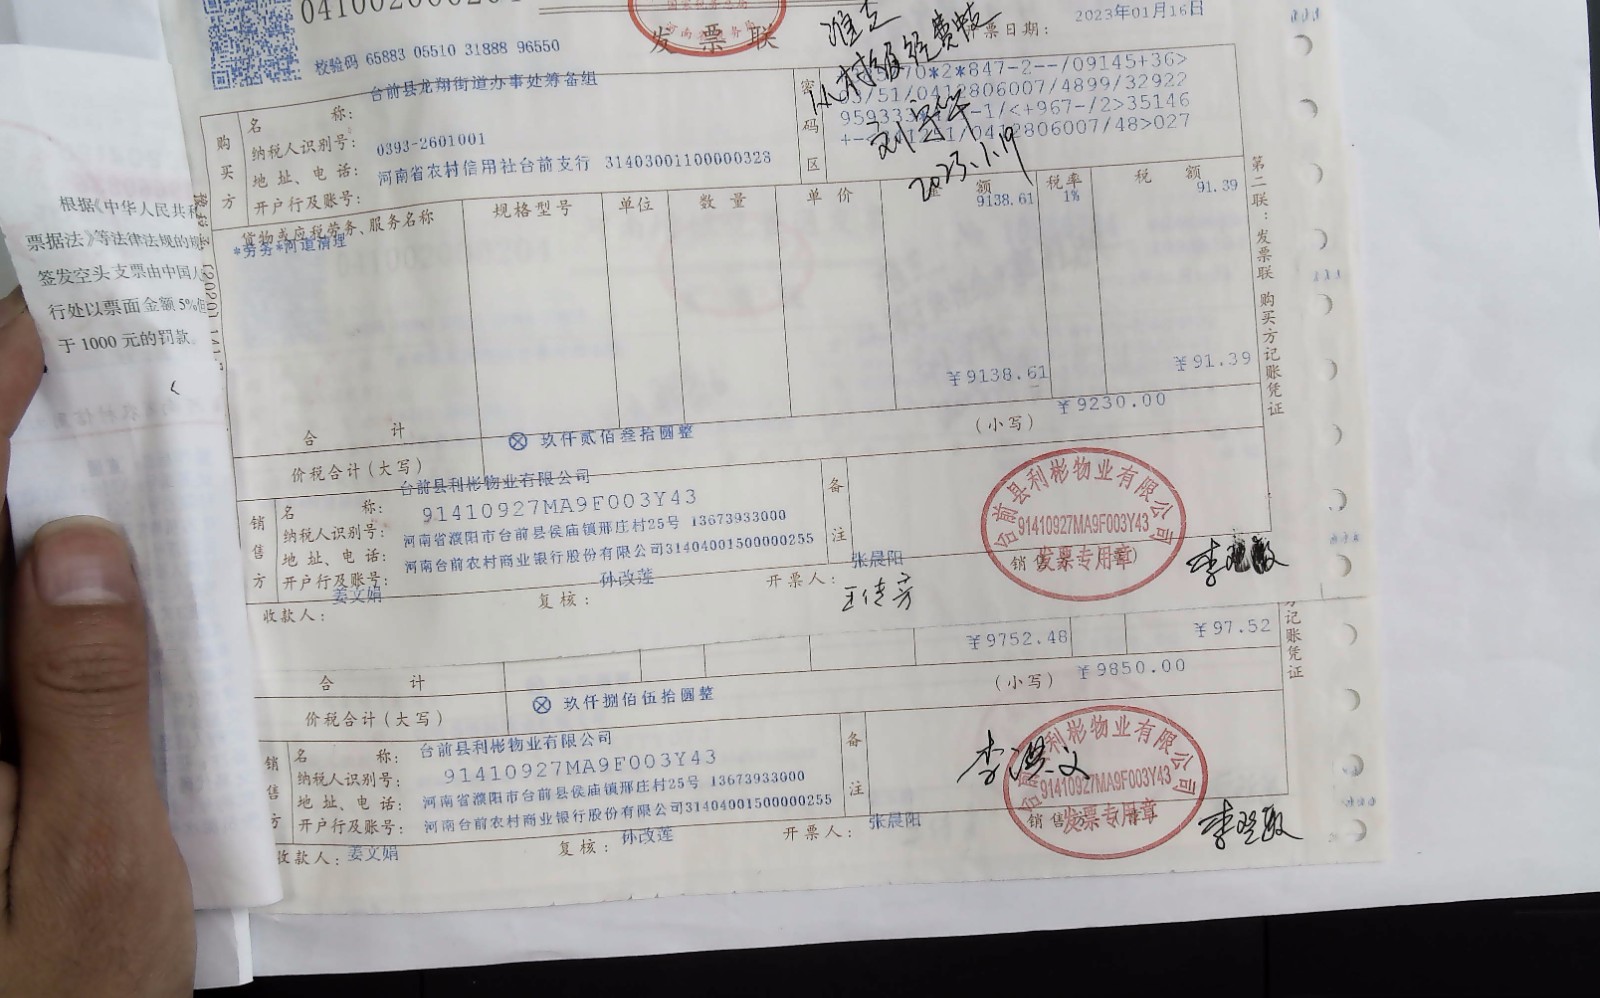 校验码 65883 05510 31888 96550
发票联
票日期：
2023年01月16日
准支
购买方
名称：
台前县龙翔街道办事处筹备组
纳税人识别号：
地址、电话：
0393-2601001
开户行及账号：
河南省农村信用社台前支行 31403001100000328
密码区
70*2*847-2--/09145+36>
03/51/0412806007/4899/32922
-1/<+967-/2>35146
/0412806007/48>027
2023.1.19
货物或应税劳务、服务名称
规格型号
单位
数量
单价
额
税率
税额
*劳务*河道清理
9138.61
1%
91.39
合计
￥9138.61
￥91.39
价税合计(大写)
玖仟贰佰叁拾圆整
(小写)
￥9230.00
销售方
名称：
台前县利彬物业有限公司
纳税人识别号：
91410927MA9F003Y43
地址、电话：
河南省濮阳市台前县侯庙镇邢庄村25号 13673933000
开户行及账号：
河南台前农村商业银行股份有限公司31404001500000255
备注
台前县利彬物业有限公司
91410927MA9F003Y43
发票专用章
收款人：
姜文娟
复核：
孙改莲
开票人：
张晨阳
王传芳
第二联：发票联 购买方记账凭证
合计
￥9752.48
￥97.52
价税合计(大写)
玖仟捌佰伍拾圆整
(小写)
￥9850.00
销售方
名称：
台前县利彬物业有限公司
纳税人识别号：
91410927MA9F003Y43
地址、电话：
河南省濮阳市台前县侯庙镇邢庄村25号 13673933000
开户行及账号：
河南台前农村商业银行股份有限公司31404001500000255
备注
李洪文
利彬物业有限公司
91410927MA9F003Y43
发票专用章
收款人：
姜文娟
复核：
孙改莲
开票人：
张晨阳
销售
记账凭证
根据《中华人民共和
票据法》等法律法规的规
签发空头支票由中国人
行处以票面金额5%但
于1000元的罚款